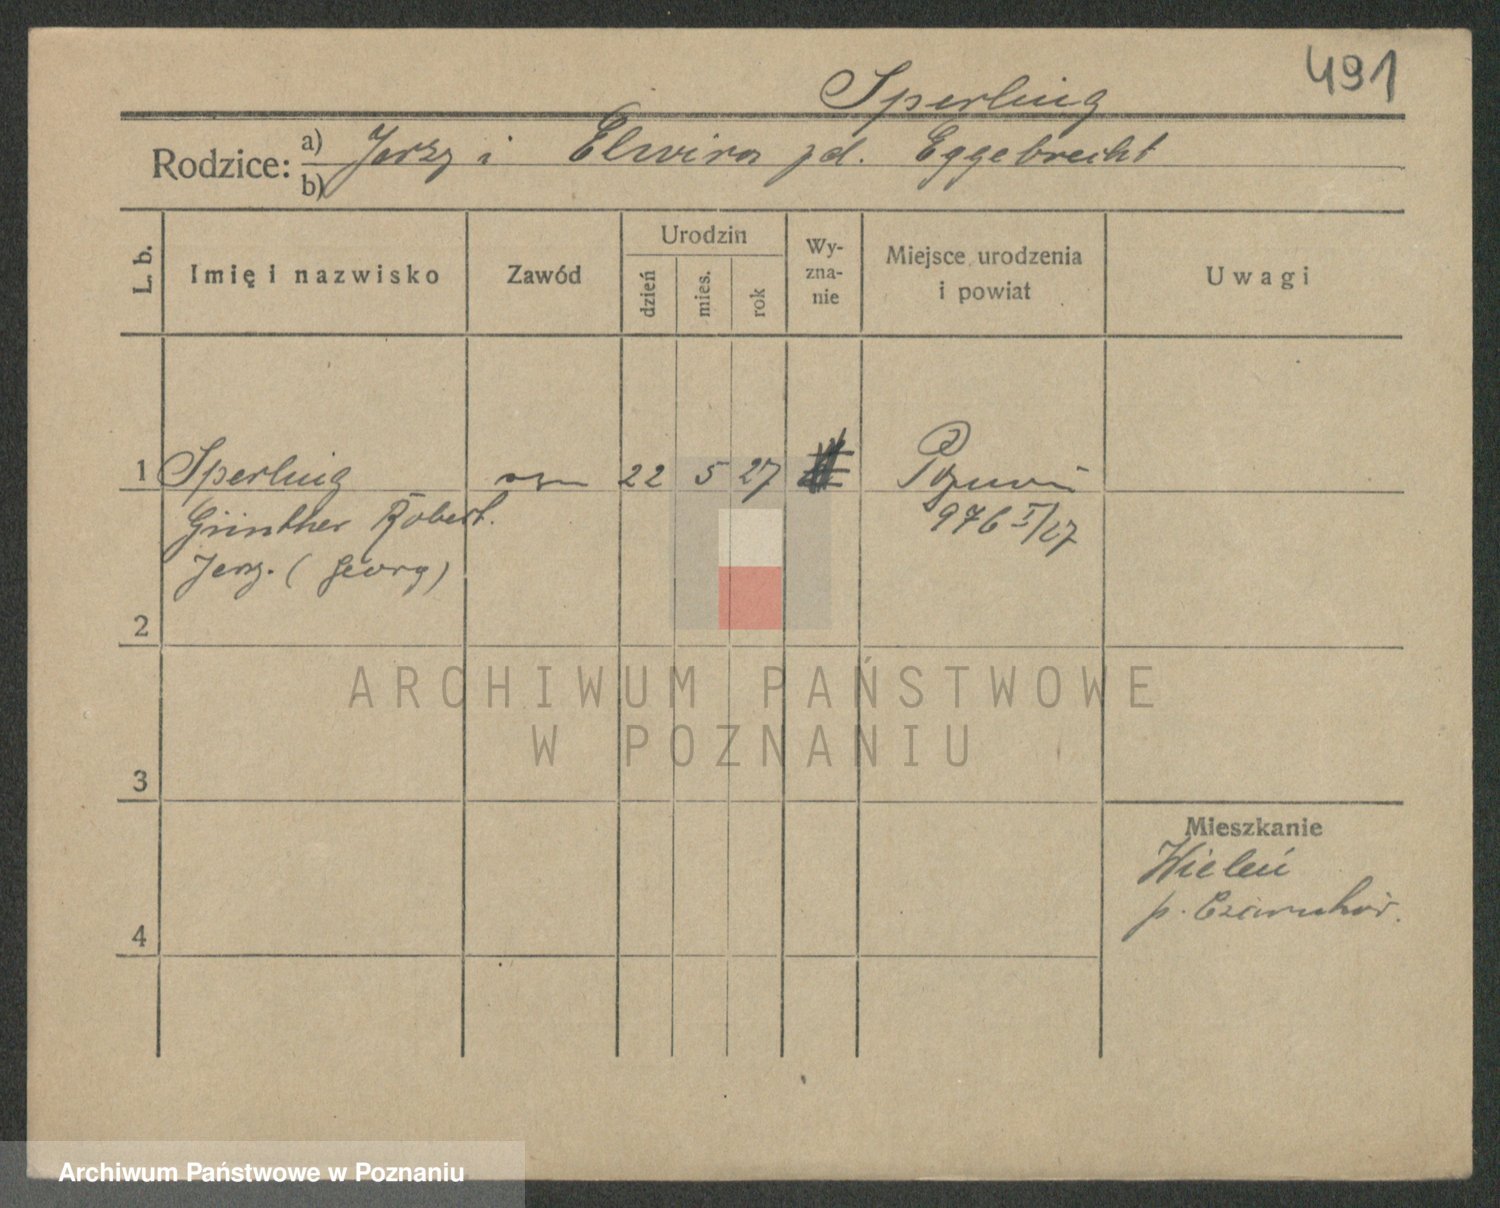 491
Sperling
Rodzice: a) Jerzy i Elwira zd. Eggebrecht
b)
L. b.
Imię i nazwisko
Zawód
Urodzin
dzień
mies.
rok
Wy-
zna-
nie
Miejsce urodzenia
i powiat
Uwagi
1 Sperling 22 5 27 Poznań
Günther Robert. 976 I/27
Jerzy. (Georg)
2
ARCHIWUM PAŃSTWOWE
W POZNANIU
3
Mieszkanie
Wieleń
p. Czarnków.
4
Archiwum Państwowe w Poznaniu